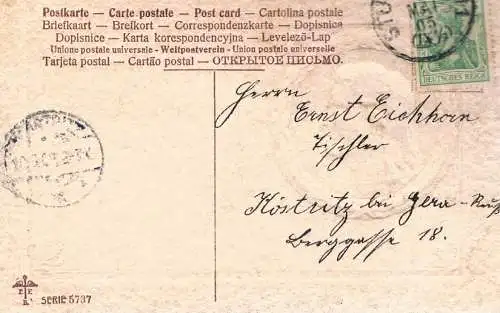 Postkarte — Carte postale — Post card — Cartolina postale
Briefkaart — Brefkort — Correspondenzkarte — Dopisnica
Dopisnice — Karta korespondencyjna — Levelező-Lap
Union postale universale - Weltpostverein - Union postale universelle
Tarjeta postal — Cartão postal — ОТКРЫТОЕ ПИСЬМО.
MAI
05
DEUTSCHES REICH
Herrn
Ernst Eichhorn
Tischler
Köstritz bei Gera-Reuß
Berggasse 18.
SERIE 5737